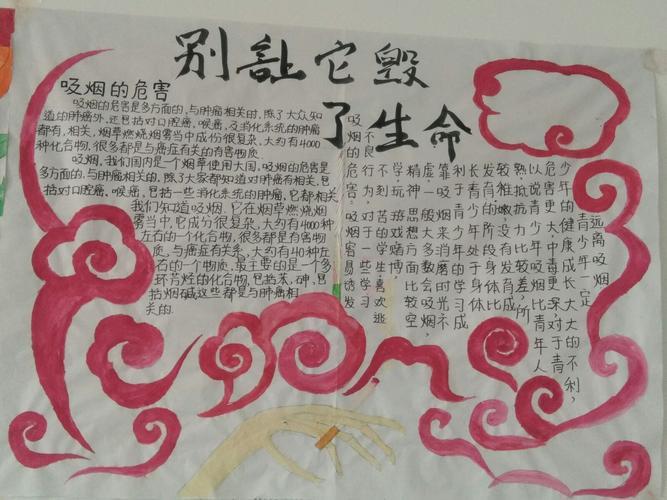 别让它毁
了生命
吸烟的危害
吸烟的危害是多方面的,与肿瘤相关的,除了大众知
道的肺癌外,还包括对口腔癌,喉癌,及消化系统的肿瘤
都有,相关,烟草燃烧烟雾当中成份很复杂,大约有4000
种化合物,很多都是与癌症有关的有害物质
吸烟,我们国内是一个烟草使用大国,吸烟的危害是
多方面的,与肿瘤相关的,除了大家都知道对肺癌有相关,包
括对口腔癌、喉癌,包括一些消化系统的肿瘤,它都相关
我们知道吸烟,它在烟草燃烧烟
雾当中,它成分很复杂,大约有4000种
左右的一个化合物,很多都是有害物
质,与癌症有关系,大约有40种左
右的一个物质,最主要的是一个多
环芳烃的化合物,包括苯,砷,包
括烟碱这些都是与肺癌相
关的.
吸烟的危害,吸烟容易诱发
不良行为,对于一些学习
不到、苦的学生喜欢逃
学、玩、戏赌博,
精神、思想方面比较空
虚,一般大多数会吸烟,
靠吸烟来消磨时光不
利于青少年的学习成
长青少年处于身体
发育的阶段身体比
较稚嫩,没有发育成
熟,抵抗力比较差,所
以说青少年吸烟比青年人
危害更大,中毒更深对于青
少年的健康成长大大的不利,
青少年一定
远离吸烟